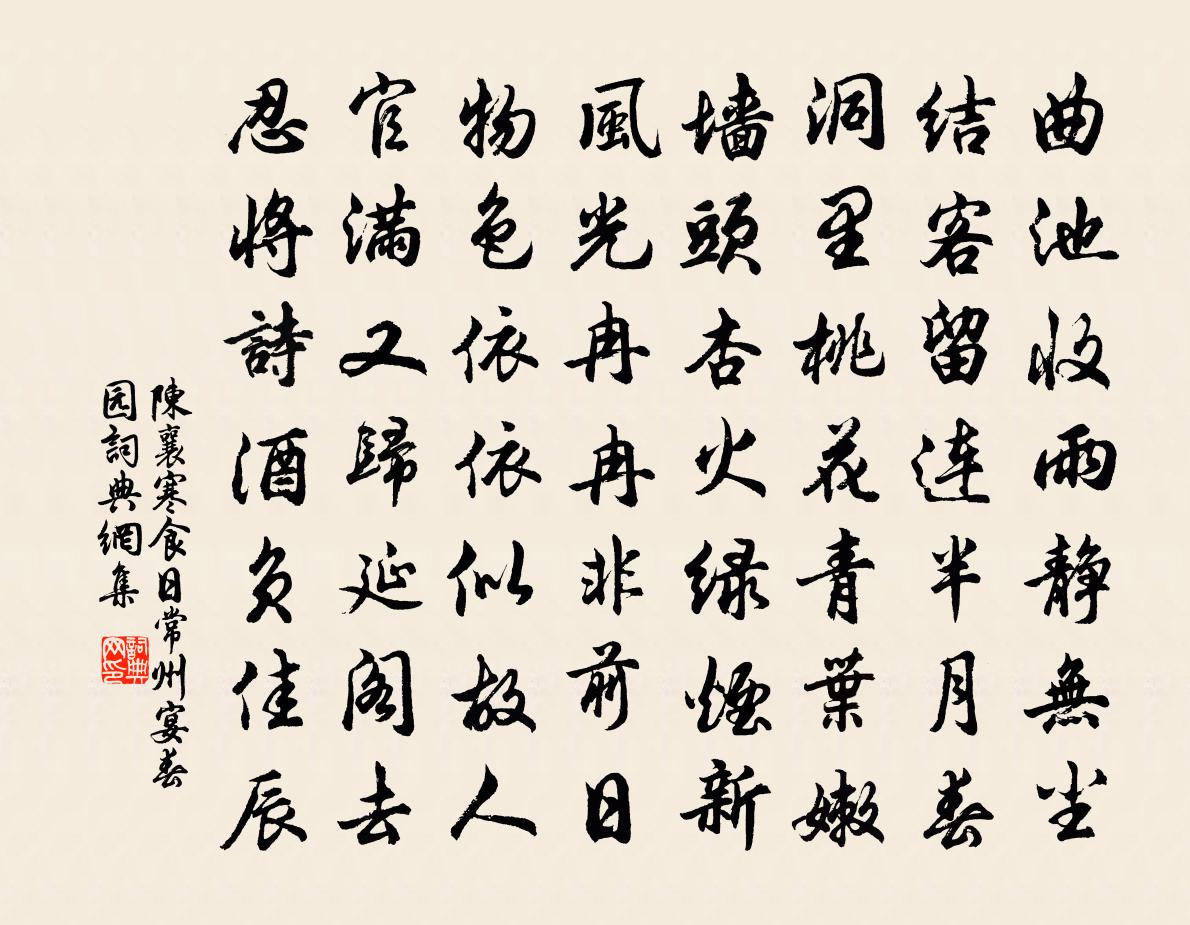 曲池收雨静無尘
结客留连半月春
洞里桃花青葉嫩
墙頭杏火绿煙新
風光冉冉非前日
物色依依似故人
官满又歸延阁去
忍将詩酒负佳辰
陳襄寒食日常州宴春
园詞典網集
詞典
网印